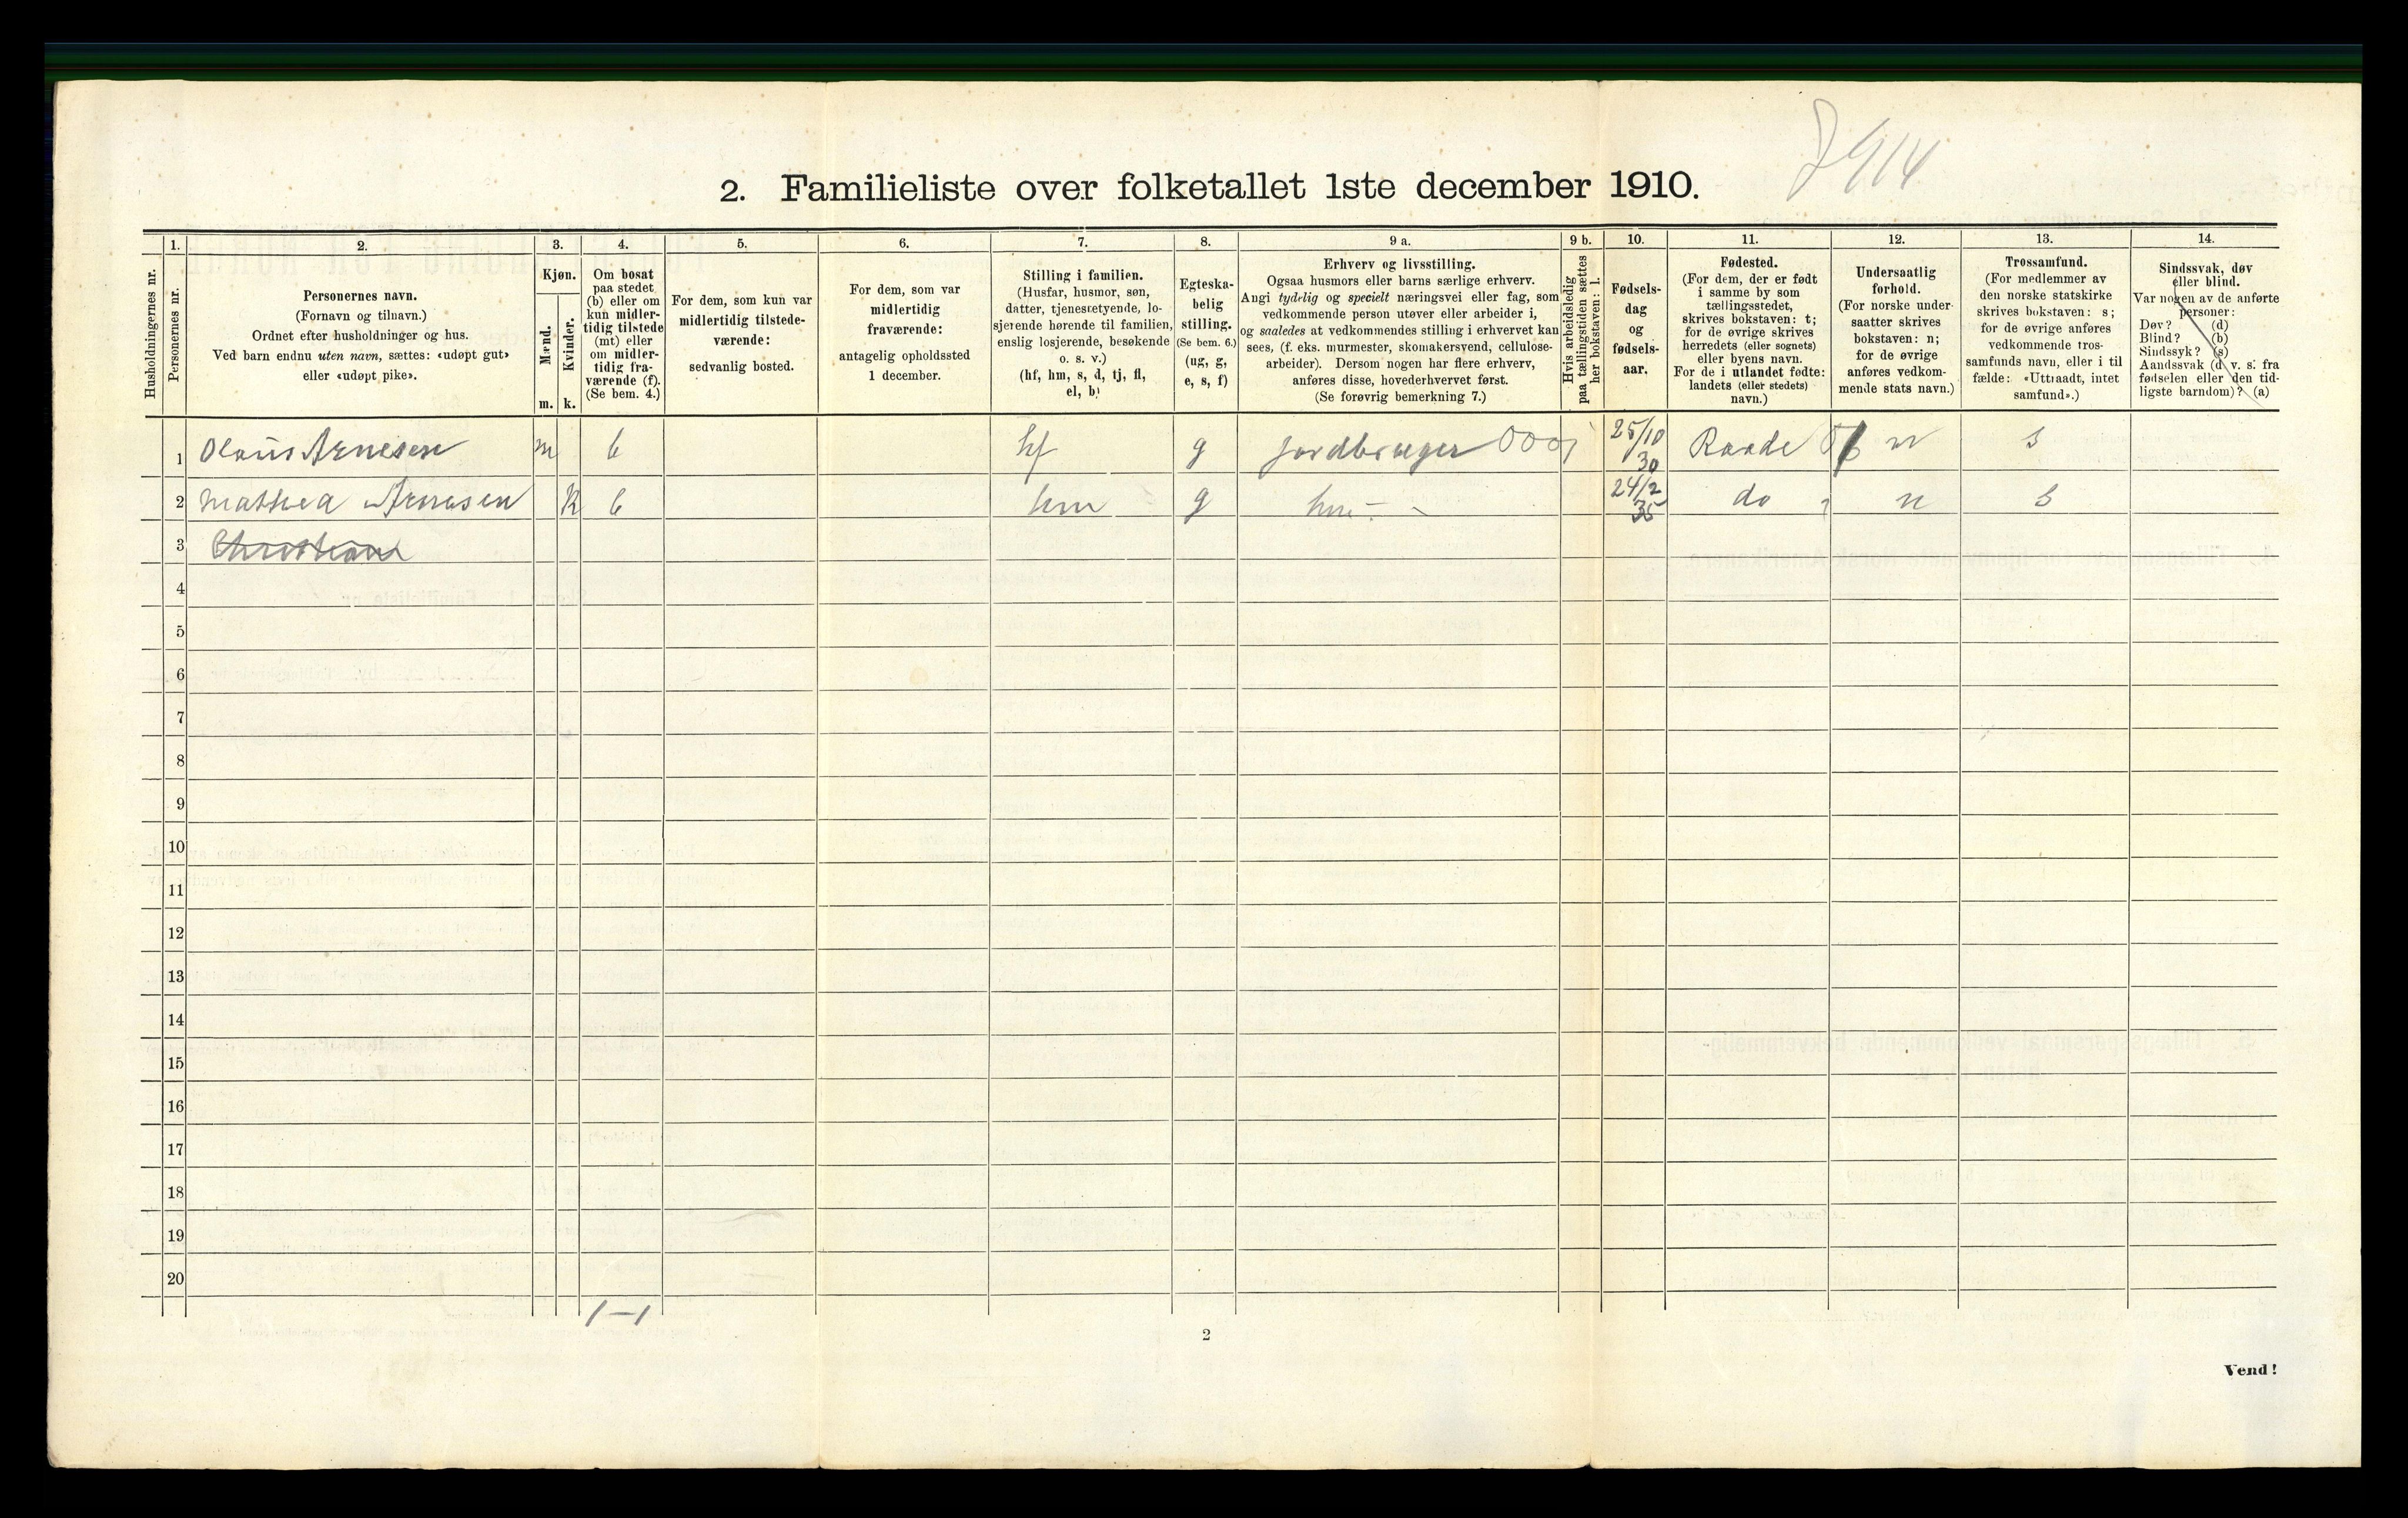 7914
2. Familieliste over folketallet 1ste december 1910.
Husholdningernes nr.
1.
Personernes nr.
2.
Personernes navn.
(Fornavn og tilnavn.)
Ordnet efter husholdninger og hus.
Ved barn endnu uten navn, sættes: «udøpt gut»
eller «udøpt pike».
3.
Kjøn.
Mænd.
Kvinder.
m. k.
4.
Om bosat
paa stedet
(b) eller om
kun midler-
tidig tilstede
(mt) eller
om midler-
tidig fra-
værende (f).
(Se bem. 4.)
5.
For dem, som kun var
midlertidig tilstede-
værende:
sedvanlig bosted.
6.
For dem, som var
midlertidig
fraværende:
antagelig opholdssted
1 december.
7.
Stilling i familien.
(Husfar, husmor, søn,
datter, tjenestetyende, lo-
sjerende hørende til familien,
enslig losjerende, besøkende
o. s. v.)
(hf, hm, s, d, tj, fl,
el, b)
8.
Egteska-
belig
stilling.
(Se bem. 6.)
(ug, g,
e, s, f)
9 a.
Erhverv og livsstilling.
Ogsaa husmors eller barns særlige erhverv.
Angi tydelig og specielt næringsvei eller fag, som
vedkommende person utøver eller arbeider i,
og saaledes at vedkommendes stilling i erhvervet kan
sees, (f. eks. murmester, skomakersvend, cellulose-
arbeider). Dersom nogen har flere erhverv,
anføres disse, hovederhvervet først.
(Se forøvrig bemerkning 7.)
9 b.
Hvis arbeidsledig
paa tællingstiden sættes
her bokstaven: l.
10.
Fødsels-
dag
og
fødsels-
aar.
11.
Fødested.
(For dem, der er født
i samme by som
tællingsstedet,
skrives bokstaven: t;
for de øvrige skrives
herredets (eller sognets)
eller byens navn.
For de i utlandet fødte:
landets (eller stedets)
navn.)
12.
Undersaatlig
forhold.
(For norske under-
saatter skrives
bokstaven: n;
for de øvrige
anføres vedkom-
mende stats navn.)
13.
Trossamfund.
(For medlemmer av
den norske statskirke
skrives bokstaven: s;
for de øvrige anføres
vedkommende tros-
samfunds navn, eller i til-
fælde: «Uttraadt, intet
samfund».)
14.
Sindssvak, døv
eller blind.
Var nogen av de anførte
personer:
Døv? (d)
Blind? (b)
Sindssyk? (s)
Aandssvak (d. v. s. fra
fødselen eller den tid-
ligste barndom)? (a)
1 Olaus Arnesen m b hf g jordbruger 25/10 30 Raade n s
2 Mathea Arnesen k b hm g hm - 24/2 35 do n s
3 Christiane
4
5
6
7
8
9
10
11
12
13
14
15
16
17
18
19
20
1 — 1
2
Vend!